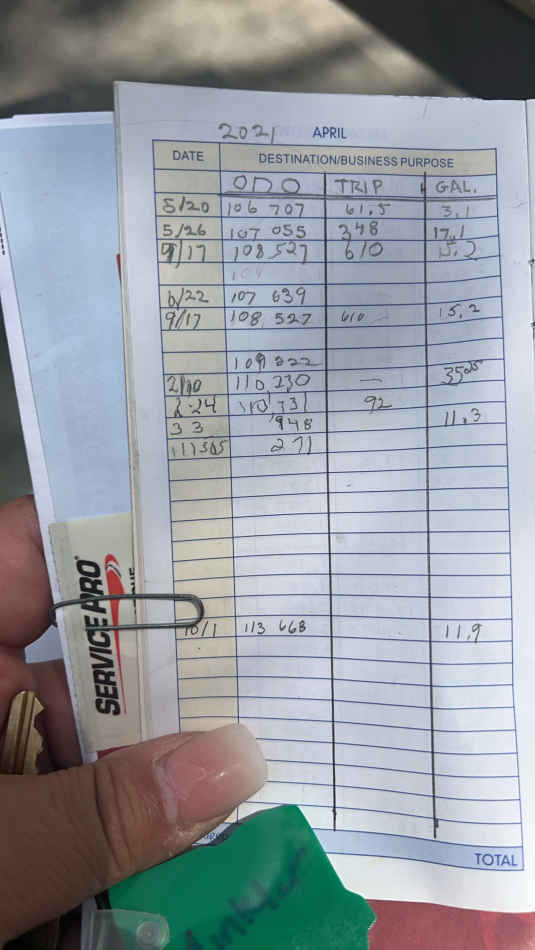 2021 APRIL
DATE DESTINATION/BUSINESS PURPOSE
ODO TRIP GAL.
5/20 106 707 61.5 3.1
5/26 107 055 348 17.1
9/17 108,527 610 15.2
6/22 107 639
9/17 108,527 610 15.2
109 222
2/10 110,230 — 35.25
2-24 110,731 92
3 3 948 11.3
111505 271
10/1 113 668 11.9
TOTAL
SERVICE PRO